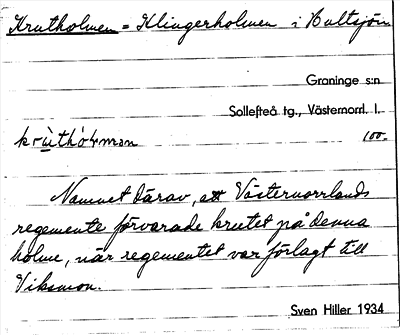 Krutholmen = Klingerholmen i Bultsjön
Graninge s:n
Sollefteå tg., Västernorrl. l.
krùthòrman 100.
Namnet därav, att Västernorrlands
regemente förvarade krutet på denna
holme, när regementet var förlagt till
Viksmon.
Sven Hiller 1934